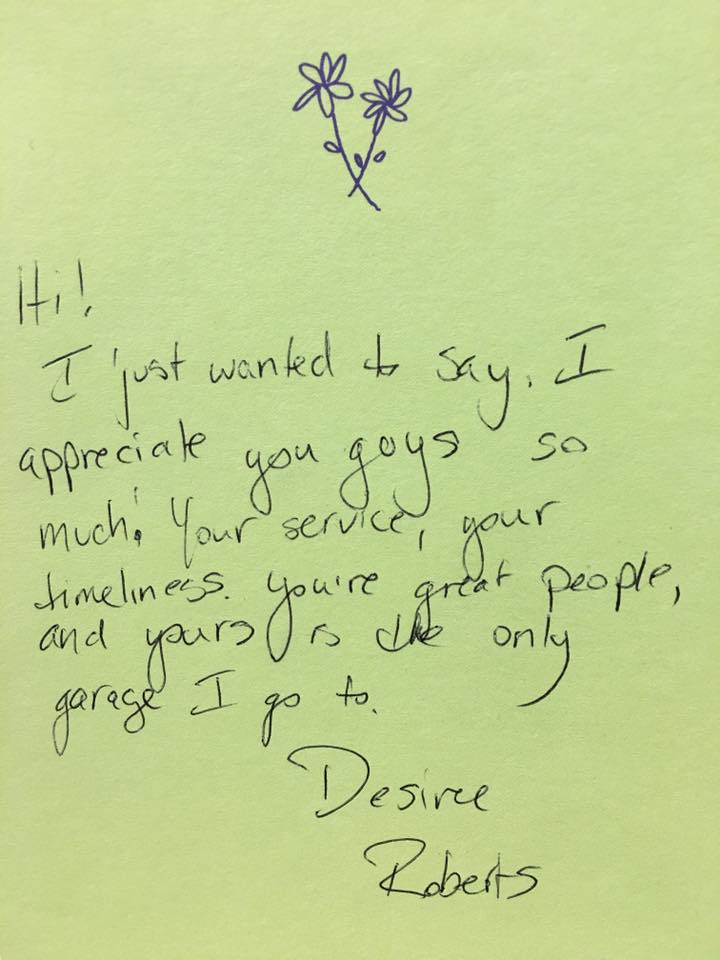 Hi!
I just wanted to say, I
appreciate you guys so
much! Your service, your
timeliness. You're great people,
and yours is the only
garage I go to.
Desiree
Roberts